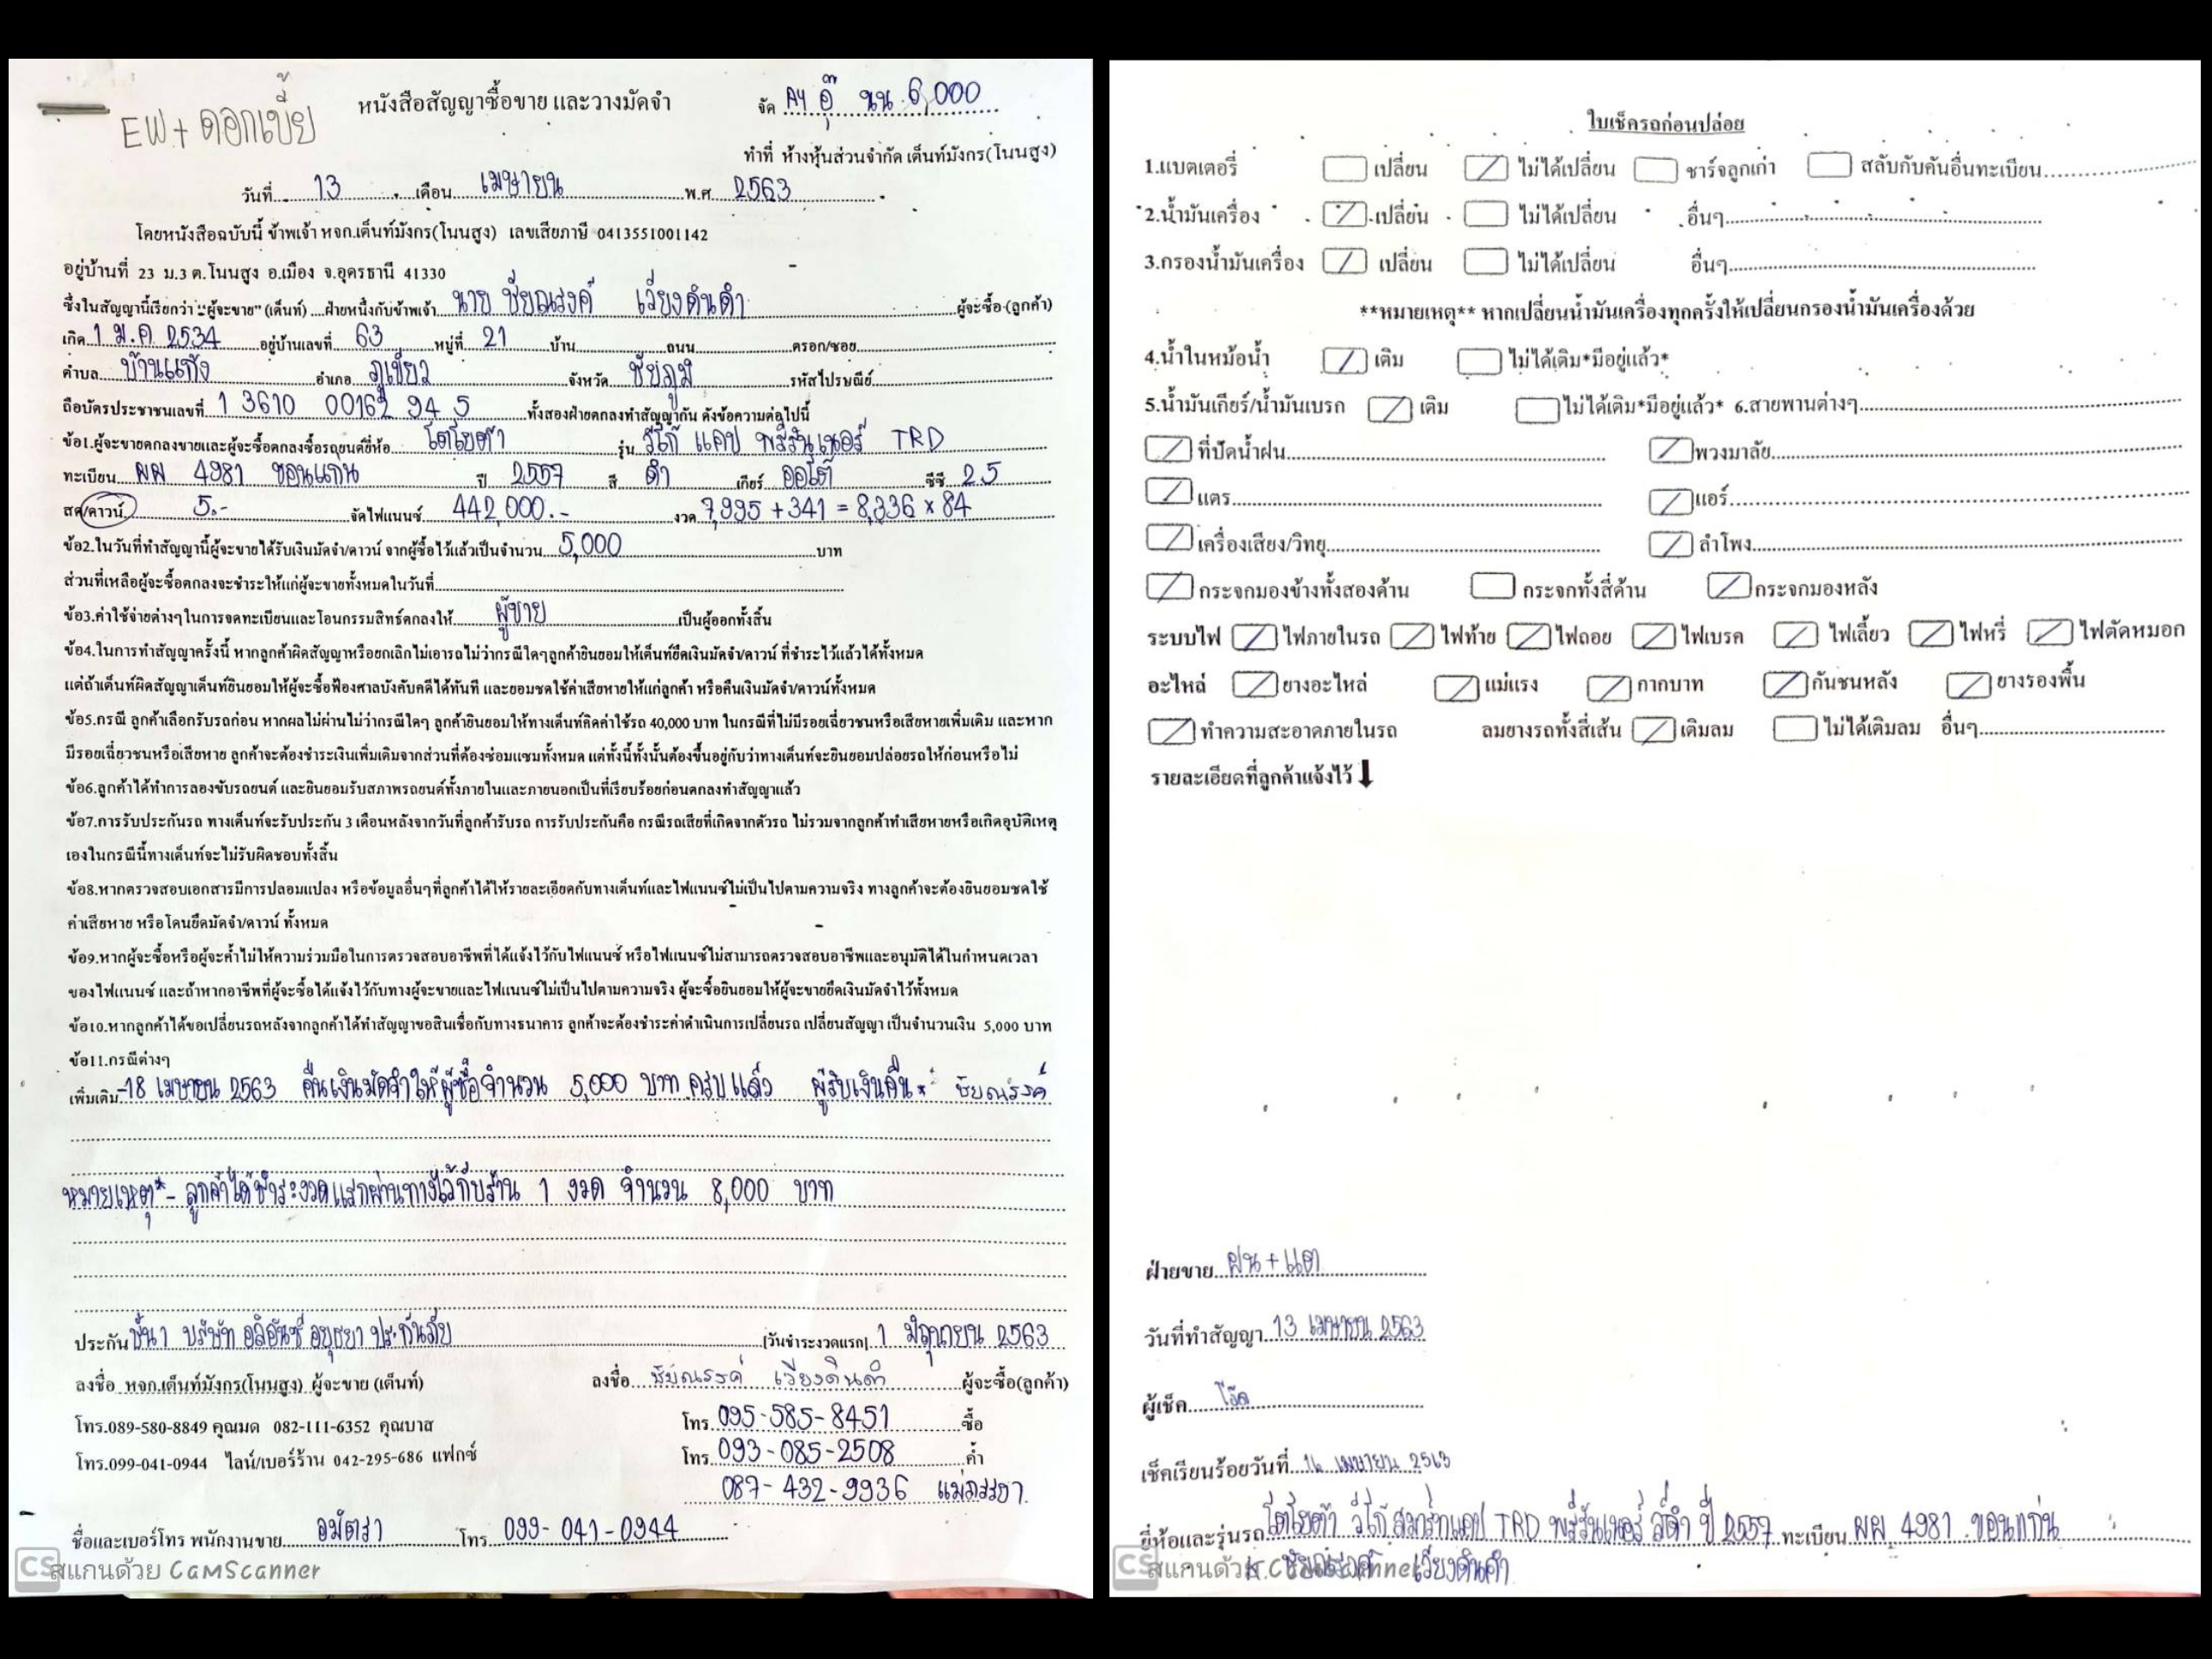 EW + ดอกเบี้ย
หนังสือสัญญาซื้อขาย และวางมัดจำ
จัด AY อุ๊ นน 6,000
ทำที่ ห้างหุ้นส่วนจำกัด เต็นท์มังกร(โนนสูง)
วันที่ 13 เดือน เมษายน พ.ศ 2563
โดยหนังสือฉบับนี้ ข้าพเจ้า หจก.เต็นท์มังกร(โนนสูง) เลขเสียภาษี 0413551001142
อยู่บ้านที่ 23 ม.3 ต.โนนสูง อ.เมือง จ.อุดรธานี 41330
ซึ่งในสัญญานี้เรียกว่า "ผู้จะขาย" (เต็นท์) ....ฝ่ายหนึ่งกับข้าพเจ้า นาย ชัยณรงค์ เวียงดินดำ ผู้จะซื้อ (ลูกค้า)
เกิด 1 ม.ค 2534 อยู่บ้านเลขที่ 63 หมู่ที่ 21 บ้าน ถนน ครอก/ซอย
ตำบล บ้านแก้ง อำเภอ ภูเขียว จังหวัด ชัยภูมิ รหัสไปรษณีย์
ถือบัตรประชาชนเลขที่ 1 3610 00162 94 5 ทั้งสองฝ่ายตกลงทำสัญญากัน ดังข้อความต่อไปนี้
ข้อ1.ผู้จะขายตกลงขายและผู้จะซื้อตกลงซื้อรถยนต์ยี่ห้อ โตโยต้า รุ่น วีโก้ แคป พรีรันเนอร์ TRD
ทะเบียน ผผ 4981 ขอนแก่น ปี 2557 สี ดำ เกียร์ ออโต้ ซีซี 2.5
สด/ดาวน์ 5.- จัดไฟแนนซ์ 442,000.- งวด 7,995 + 341 = 8,336 x 84
ข้อ2.ในวันที่ทำสัญญานี้ผู้จะขายได้รับเงินมัดจำ/ดาวน์ จากผู้ซื้อไว้แล้วเป็นจำนวน 5,000 บาท
ส่วนที่เหลือผู้จะซื้อตกลงจะชำระให้แก่ผู้จะขายทั้งหมดในวันที่
ข้อ3.ค่าใช้จ่ายต่างๆในการจดทะเบียนและโอนกรรมสิทธ์ตกลงให้ ผู้ขาย เป็นผู้ออกทั้งสิ้น
ข้อ4.ในการทำสัญญาครั้งนี้ หากลูกค้าผิดสัญญาหรือยกเลิกไม่เอารถไม่ว่ากรณีใดๆลูกค้ายินยอมให้เต็นท์ยึดเงินมัดจำ/ดาวน์ ที่ชำระไว้แล้วได้ทั้งหมด
แต่ถ้าเต็นท์ผิดสัญญาเต็นท์ยินยอมให้ผู้จะซื้อฟ้องศาลบังคับคดีได้ทันที และยอมชดใช้ค่าเสียหายให้แก่ลูกค้า หรือคืนเงินมัดจำ/ดาวน์ทั้งหมด
ข้อ5.กรณี ลูกค้าเลือกรับรถก่อน หากผลไม่ผ่านไม่ว่ากรณีใดๆ ลูกค้ายินยอมให้ทางเต็นท์คิดค่าใช้รถ 40,000 บาท ในกรณีที่ไม่มีรอยเฉี่ยวชนหรือเสียหายเพิ่มเติม และหาก
มีรอยเฉี่ยวชนหรือเสียหาย ลูกค้าจะต้องชำระเงินเพิ่มเติมจากส่วนที่ต้องซ่อมแซมทั้งหมด แต่ทั้งนี้ทั้งนั้นต้องขึ้นอยู่กับว่าทางเต็นท์จะยินยอมปล่อยรถให้ก่อนหรือไม่
ข้อ6.ลูกค้าได้ทำการลองขับรถยนต์ และยินยอมรับสภาพรถยนต์ทั้งภายในและภายนอกเป็นที่เรียบร้อยก่อนตกลงทำสัญญาแล้ว
ข้อ7.การรับประกันรถ ทางเต็นท์จะรับประกัน 3 เดือนหลังจากวันที่ลูกค้ารับรถ การรับประกันคือ กรณีรถเสียที่เกิดจากตัวรถ ไม่รวมจากลูกค้าทำเสียหายหรือเกิดอุบัติเหตุ
เองในกรณีนี้ทางเต็นท์จะไม่รับผิดชอบทั้งสิ้น
ข้อ8.หากตรวจสอบเอกสารมีการปลอมแปลง หรือข้อมูลอื่นๆที่ลูกค้าได้ให้รายละเอียดกับทางเต็นท์และไฟแนนซ์ไม่เป็นไปตามความจริง ทางลูกค้าจะต้องยินยอมชดใช้
ค่าเสียหาย หรือโดนยึดมัดจำ/ดาวน์ ทั้งหมด
ข้อ9.หากผู้จะซื้อหรือผู้จะค้ำไม่ให้ความร่วมมือในการตรวจสอบอาชีพที่ได้แจ้งไว้กับไฟแนนซ์ หรือไฟแนนซ์ไม่สามารถตรวจสอบอาชีพและอนุมัติได้ในกำหนดเวลา
ของไฟแนนซ์ และถ้าหากอาชีพที่ผู้จะซื้อได้แจ้งไว้กับทางผู้จะขายและไฟแนนซ์ไม่เป็นไปตามความจริง ผู้จะซื้อยินยอมให้ผู้จะขายยึดเงินมัดจำไว้ทั้งหมด
ข้อ10.หากลูกค้าได้ขอเปลี่ยนรถหลังจากลูกค้าได้ทำสัญญาขอสินเชื่อกับทางธนาคาร ลูกค้าจะต้องชำระค่าดำเนินการเปลี่ยนรถ เปลี่ยนสัญญา เป็นจำนวนเงิน 5,000 บาท
ข้อ11.กรณีต่างๆ
เพิ่มเติม -18 เมษายน 2563 คืนเงินมัดจำให้ผู้ซื้อจำนวน 5,000 บาท ครบแล้ว ผู้รับเงินคืน * ชัยณรงค์
หมายเหตุ* - ลูกค้าได้ชำระงวดแรกผ่านทางไว้กับร้าน 1 งวด จำนวน 8,000 บาท
ประกัน ชั้น 1 บริษัท อลิอันซ์ อยุธยา ประกันภัย (วันชำระงวดแรก) 1 มิถุนายน 2563
ลงชื่อ หจก.เต็นท์มังกร(โนนสูง) ผู้จะขาย (เต็นท์) ลงชื่อ ชัยณรงค์ เวียงดินดำ ผู้จะซื้อ(ลูกค้า)
โทร.089-580-8849 คุณมด 082-111-6352 คุณบาส โทร. 095-585-8451 ซื้อ
โทร.099-041-0944 ไลน์/เบอร์ร้าน 042-295-686 แฟกซ์ โทร. 093-085-2508 ค้ำ
087-432-9936
ชื่อและเบอร์โทร พนักงานขาย อมัตรา โทร 099-041-0944
CS สแกนด้วย CamScanner
ใบเช็ครถก่อนปล่อย
1.แบตเตอรี่ เปลี่ยน ไม่ได้เปลี่ยน ชาร์จลูกเก่า สลับกับคันอื่นทะเบียน
2.น้ำมันเครื่อง เปลี่ยน ไม่ได้เปลี่ยน อื่นๆ
3.กรองน้ำมันเครื่อง เปลี่ยน ไม่ได้เปลี่ยน อื่นๆ
**หมายเหตุ** หากเปลี่ยนน้ำมันเครื่องทุกครั้งให้เปลี่ยนกรองน้ำมันเครื่องด้วย
4.น้ำในหม้อน้ำ เติม ไม่ได้เติม*มีอยู่แล้ว*
5.น้ำมันเกียร์/น้ำมันเบรก เติม ไม่ได้เติม*มีอยู่แล้ว* 6.สายพานต่างๆ
ที่ปัดน้ำฝน พวงมาลัย
แตร แอร์
เครื่องเสียง/วิทยุ ลำโพง
กระจกมองข้างทั้งสองด้าน กระจกทั้งสี่ด้าน กระจกมองหลัง
ระบบไฟ ไฟภายในรถ ไฟท้าย ไฟถอย ไฟเบรค ไฟเลี้ยว ไฟหรี่ ไฟตัดหมอก
อะไหล่ ยางอะไหล่ แม่แรง กากบาท กันชนหลัง ยางรองพื้น
ทำความสะอาดภายในรถ ลมยางรถทั้งสี่เส้น เติมลม ไม่ได้เติมลม อื่นๆ
รายละเอียดที่ลูกค้าแจ้งไว้
ฝ่ายขาย ฝน + แต
วันที่ทำสัญญา 13 เมษายน 2563
ผู้เช็ค
เช็คเรียบร้อยวันที่ 16 เมษายน 2563
ยี่ห้อและรุ่นรถ โตโยต้า วีโก้ สมาร์ทแคป TRD พรีรันเนอร์ สีดำ ปี 2557 ทะเบียน ผผ 4981 ขอนแก่น
ชัยณรงค์ เวียงดินดำ
CS สแกนด้วย CamScanner